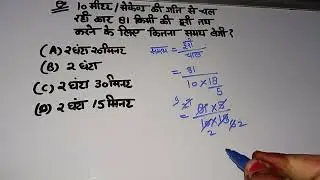 Q. 10 मीटर/सेकेण्ड की गति से चल
रही कार 81 किमी की दूरी तय
करने के लिए कितना समय लेगी ?
(A) 2 घंटा 20 मिनट
(B) 2 घंटा
(C) 2 घंटा 30 मिनट
(D) 2 घंटा 15 मिनट
समय = दूरी / चाल
= 81 / 10 × 18/5
= 81 × 5 / 10 × 18
2
2